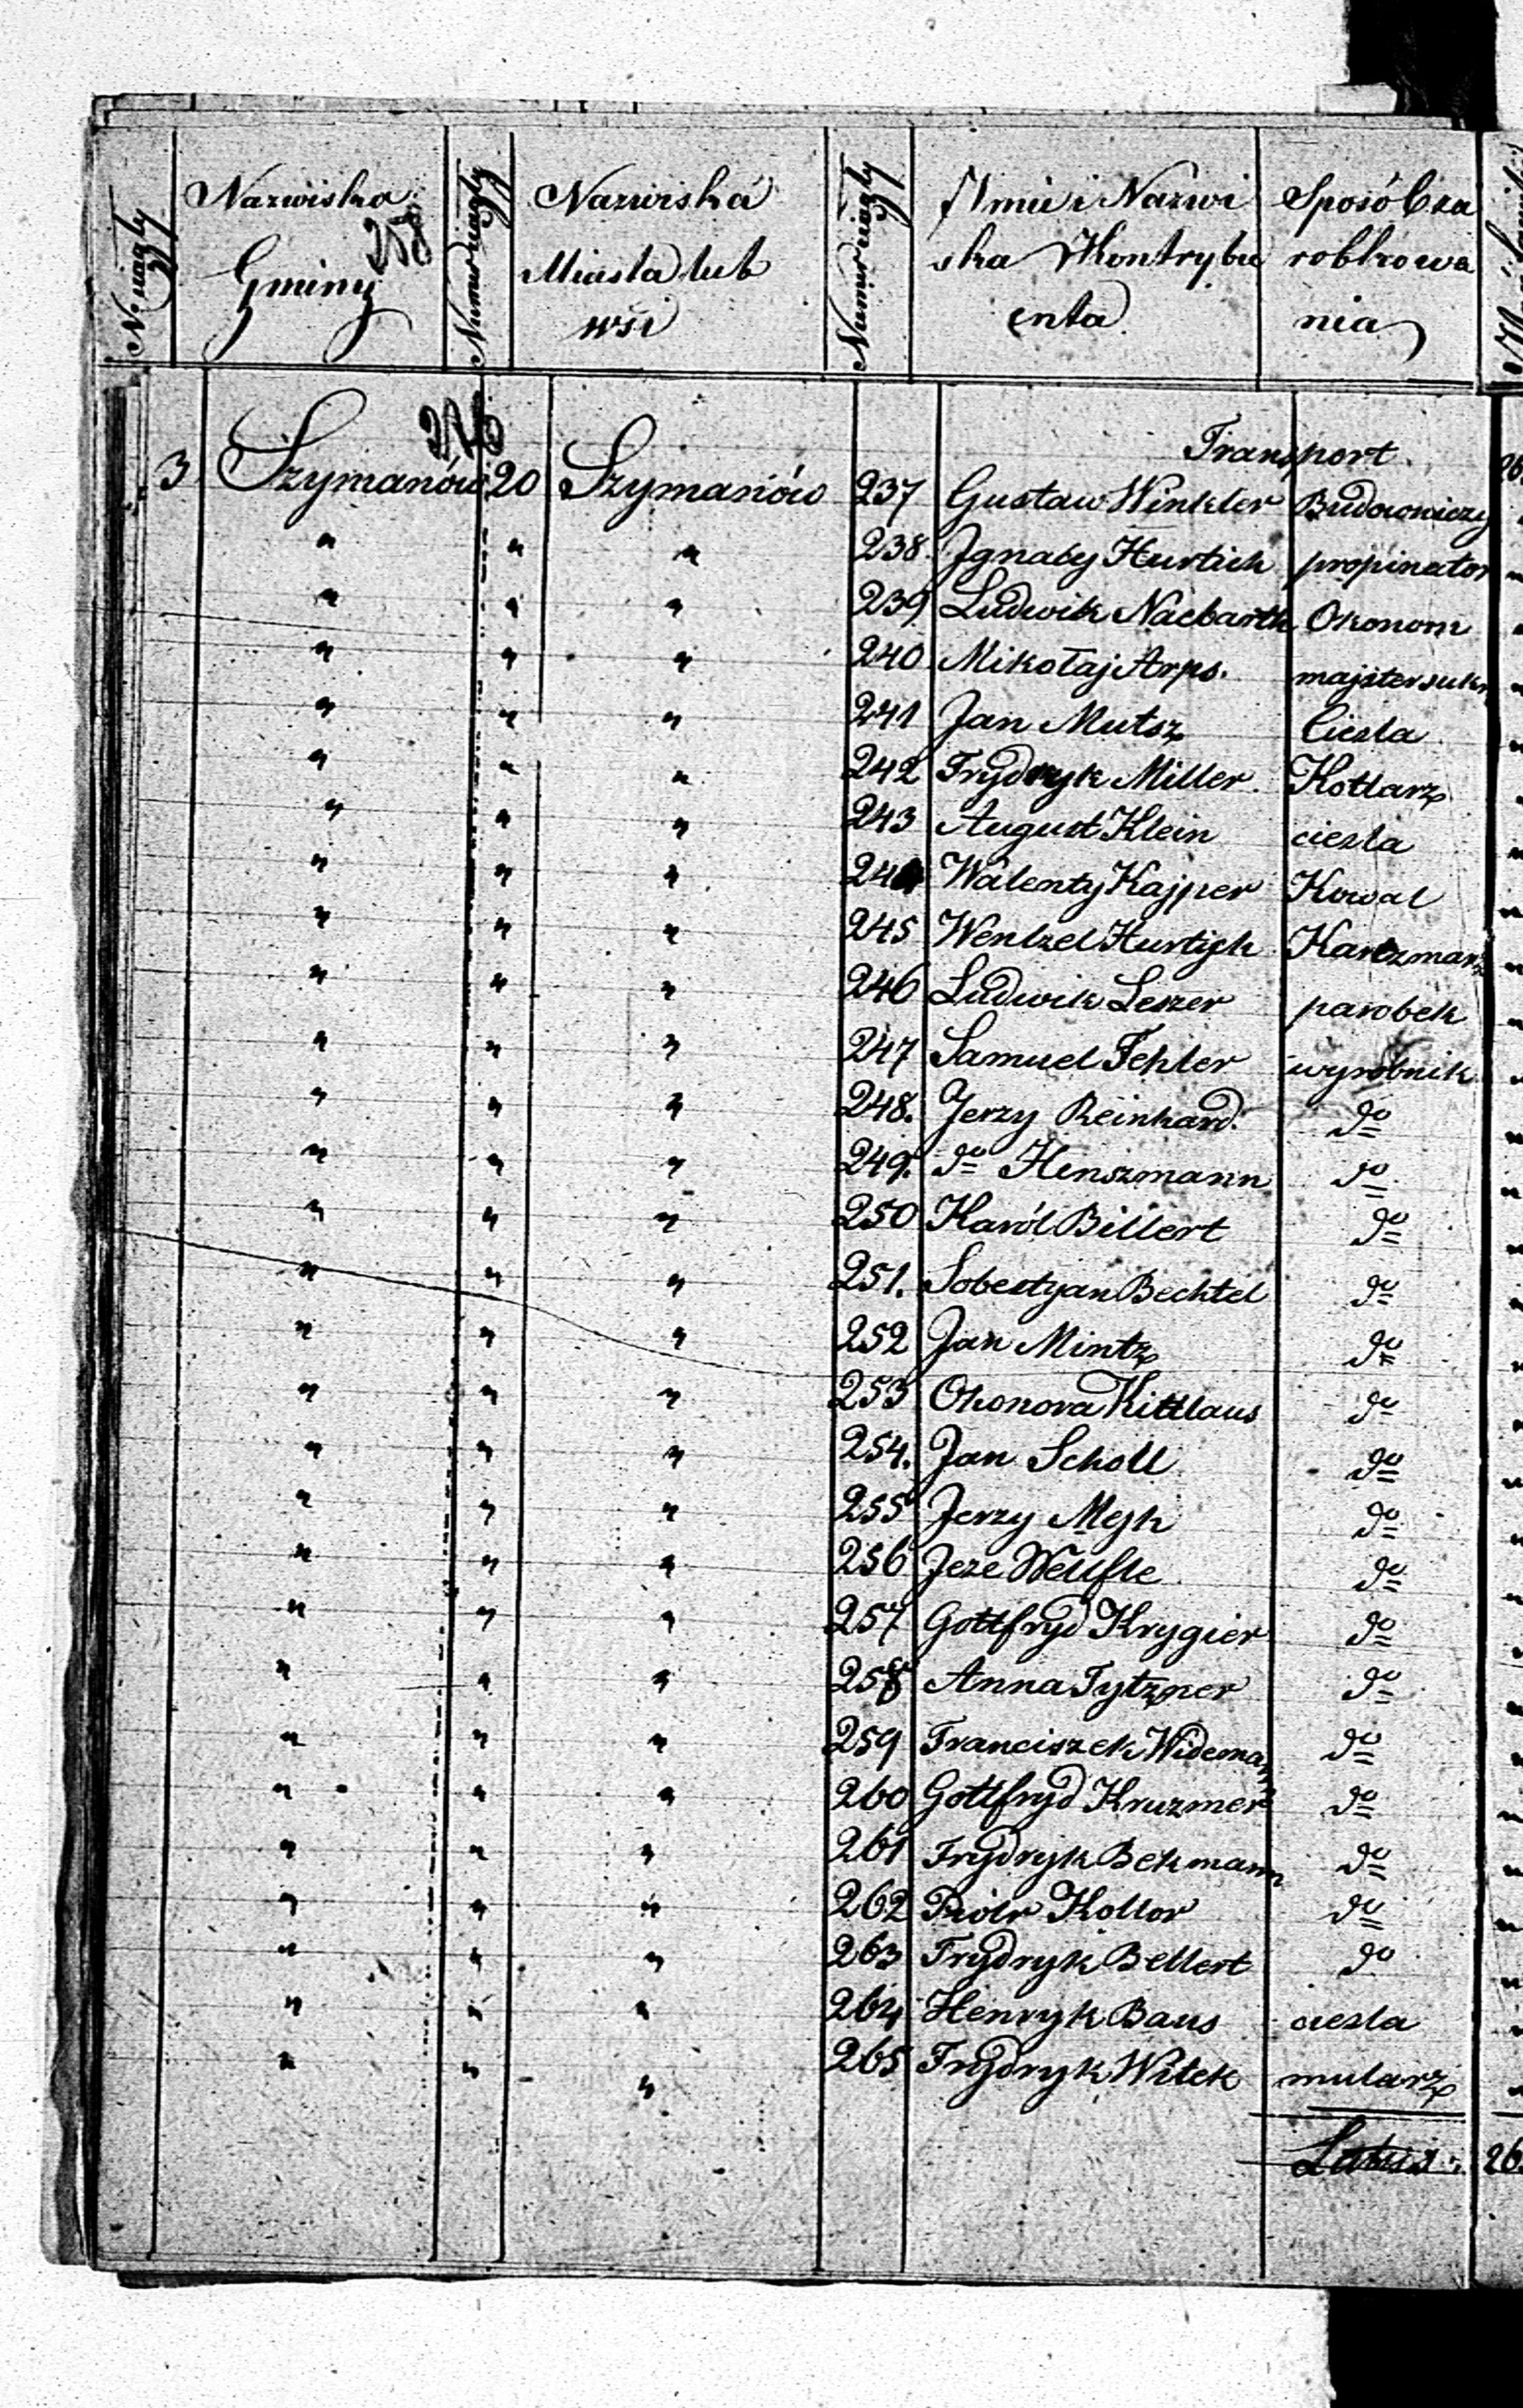 N: ciągły
Nazwiska
Gminy
258
Numer ciągły
Nazwiska
Miasta lub
wsi
Numer ciągły
Imie i Nazwi
ska Kontrybu
enta
Sposób za
robkowa
nia
Transport
3 Szymanów 20 Szymanów 237 Gustaw Winkler Budowniczy
" " " 238. Ignacy Hurtich propinator
" " " 239 Ludwik Naebarth Okonom
" " " 240 Mikołaj Arps. majster sukn
" " " 241 Jan Mutsz Ciesla
" " " 242 Frydryk Miller. Kotlarz
" " " 243 August Klein ciesla
" " " 244 Walenty Kajper Kowal
" " " 245 Wentzel Hurtych Karczmarz
" " " 246 Ludwik Leszer parobek
" " " 247 Samuel Fehler wyrobnik
" " " 248. Jerzy Reinhard. do
" " " 249. do Henszmann do
" " " 250 Karól Billert do
" " " 251. Sobestyan Bechtel do
" " " 252 Jan Mintz do
" " " 253 Okonora Kittlaus do
" " " 254. Jan Scholl do
" " " 255 Jerzy Mejk do
" " " 256 Jeze do
" " " 257 Gottfryd Krygier do
" " " 258 Anna Tytzner do
" " " 259 Franciszek Wideman do
" " " 260 Gottfryd Kruzmer do
" " " 261 Frydryk Bekmann do
" " " 262 Piotr Kollor do
" " " 263 Frydryk Bellert do
" " " 264 Henryk Baus ciesla
" " " 265 Frydryk Witek mularz
Latus. 26